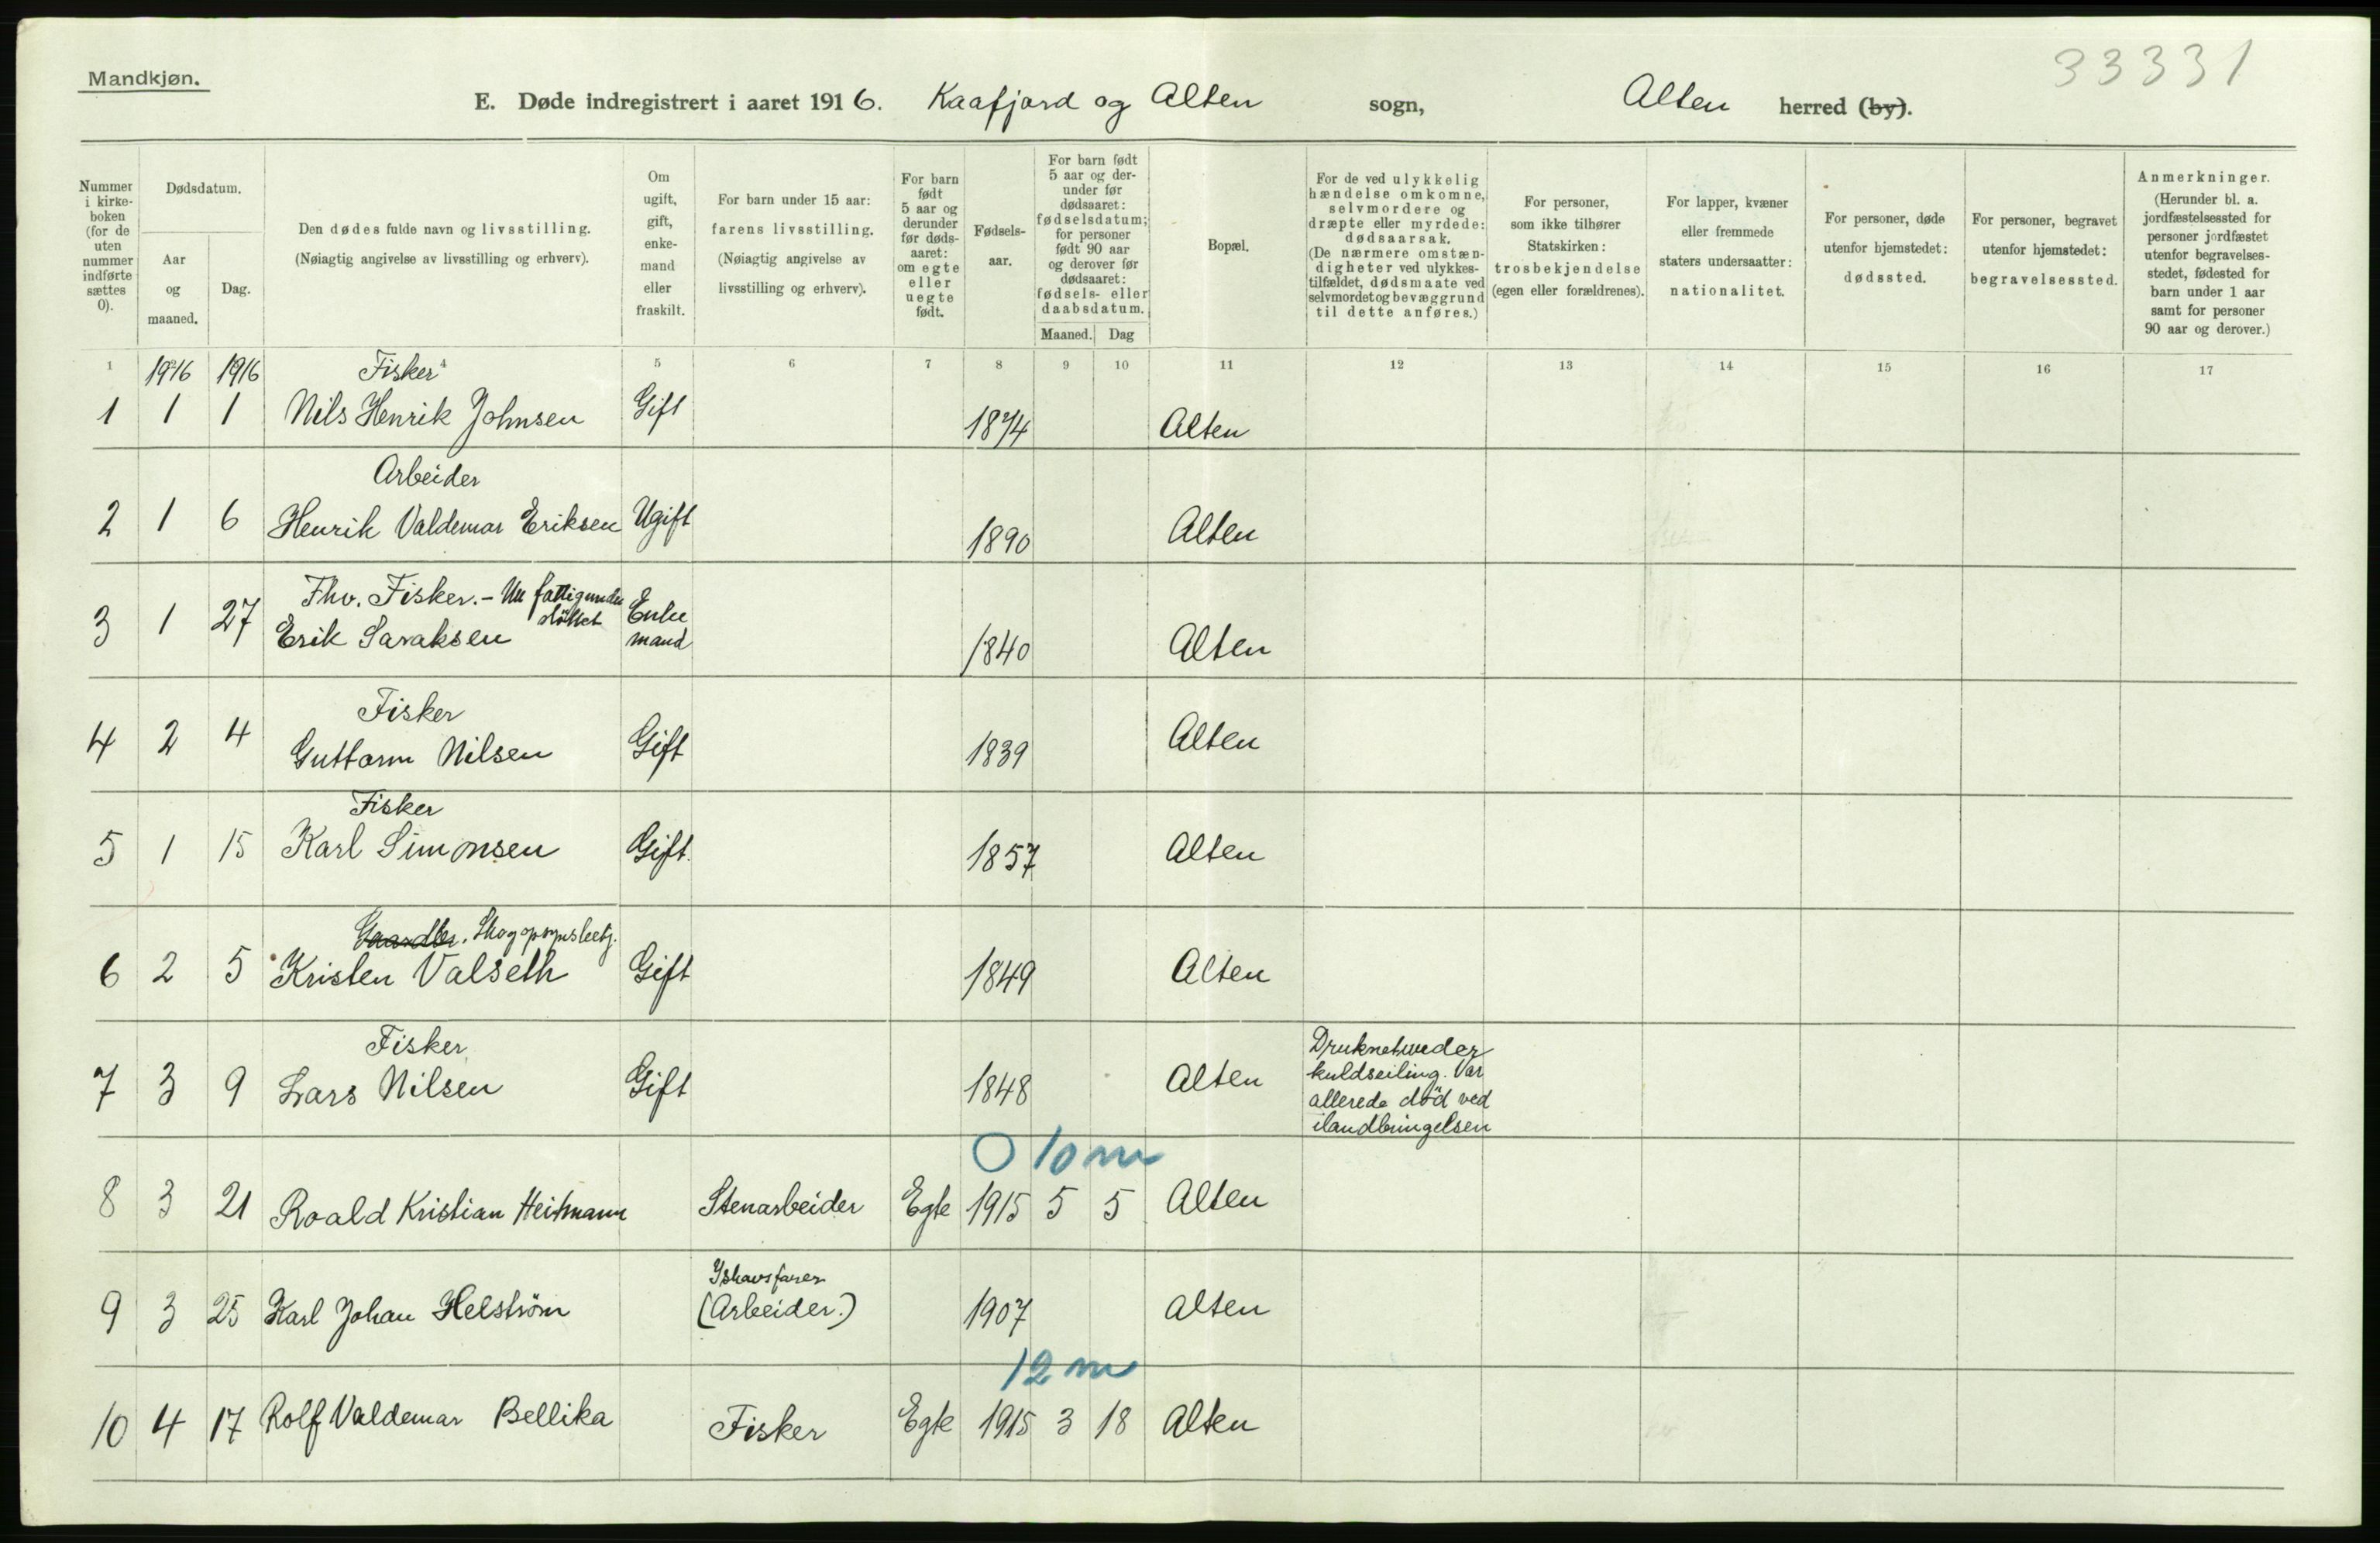 Mandkjøn.
33331
E. Døde indregistrert i aaret 1916. Kaafjord og Alten sogn, Alten herred (by).
Nummer i kirke-boken (for de uten nummer indførte sættes 0).
Dødsdatum.
Aar og maaned.
Dag.
Den dødes fulde navn og livsstilling. (Nøiagtig angivelse av livsstilling og erhverv).
Om ugift, gift, enke-mand eller fraskilt.
For barn under 15 aar: farens livsstilling. (Nøiagtig angivelse av livsstilling og erhverv).
For barn født 5 aar og derunder før døds-aaret: om egte eller uegte født.
Fødsels-aar.
For barn født 5 aar og der-under før dødsaaret: fødselsdatum; for personer født 90 aar og derover før dødsaaret: fødsels- eller daabsdatum.
Maaned. Dag
Bopæl.
For de ved ulykkelig hændelse omkomne, selvmordere og dræpte eller myrdede: dødsaarsak. (De nærmere omstæn-digheter ved ulykkes-tilfældet, dødsmaate ved selvmordet og bevæggrund til dette anføres.)
For personer, som ikke tilhører Statskirken: trosbekjendelse (egen eller forældrenes).
For lapper, kvæner eller fremmede staters undersaatter: nationalitet.
For personer, døde utenfor hjemstedet: dødssted.
For personer, begravet utenfor hjemstedet: begravelsessted.
Anmerkninger. (Herunder bl. a. jordfæstelsessted for personer jordfæstet utenfor begravelses-stedet, fødested for barn under 1 aar samt for personer 90 aar og derover.)
1 4 5 6 7 8 9 10 11 12 13 14 15 16 17
1916 1916 Fisker
1 1 1 Nils Henrik Johnsen Gift 1874 Alten
Arbeider
2 1 6 Henrik Valdemar Eriksen Ugift 1890 Alten
Fhv. Fisker. - Nu fattigunder
støttet
3 1 27 Erik Savaksen Enke mand 1840 Alten
Fisker
4 2 4 Guttorm Nilsen Gift 1839 Alten
Fisker
5 1 15 Karl Simonsen Gift. 1857 Alten
Gaardbr. Skogopsynsbetj.
6 2 5 Kristen Valseth Gift 1849 Alten
Fisker
7 3 9 Lars Nilsen Gift 1848 Alten
Druknet under
kuldseiling. Var
allerede död ved
ilandbringelsen
0 10 m
8 3 21 Roald Kristian Heitmann Stenarbeider Egte 1915 5 5 Alten
Ishavsfarer
9 3 25 Karl Johan Helström (Arbeider.) 1907 Alten
12 m
10 4 17 Rolf Valdemar Bellika Fisker Egte 1915 3 18 Alten